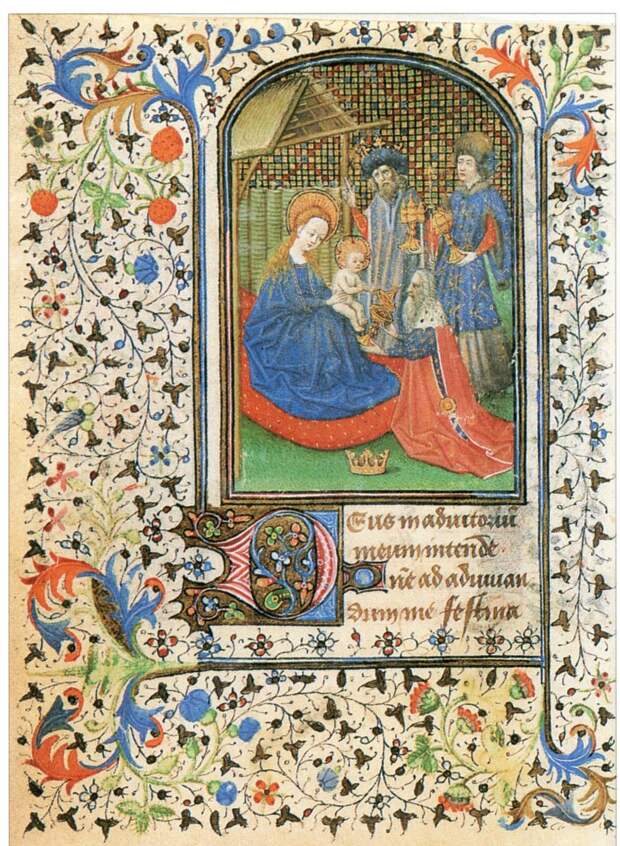 Deus in adiutoriū
meum intende·
Dn̄e ad adiuuan
dum me festina